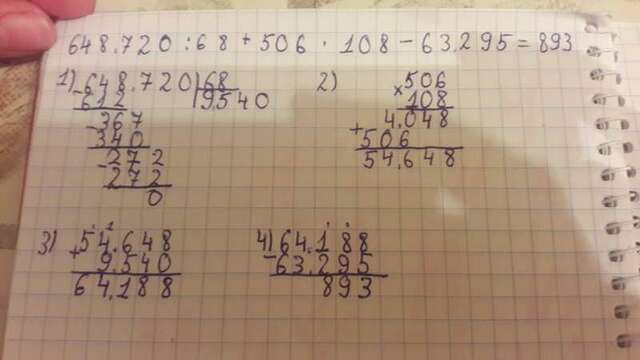 648.720 : 68 + 506 · 108 - 63.295 = 893
1) - 648.720 | 68
612 | 9.540
- 367
340
- 272
272
0
2) × 506
108
4.048
+ 506
54.648
3) + 54.648
9.540
64.188
4) - 64.188
63.295
893